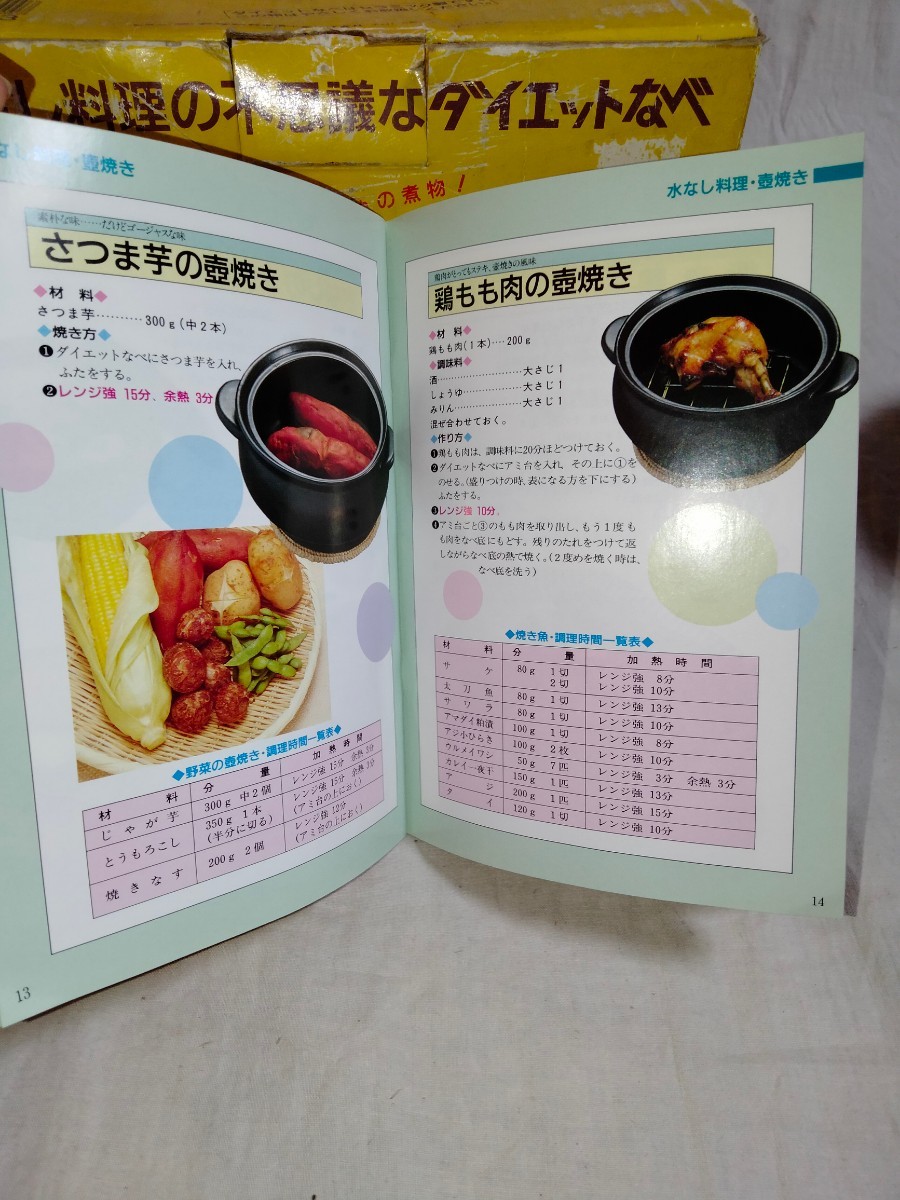 し料理の不思議なダイエットなべ
の煮物！
なし料理・壺焼き
素朴な味……だけどゴージャスな味
さつま芋の壺焼き
◆材　料◆
さつま芋………300g(中2本)
◆焼き方◆
❶ダイエットなべにさつま芋を入れ、
ふたをする。
❷レンジ強 15分、余熱 3分
◆野菜の壺焼き・調理時間一覧表◆
材　料　分　量　加熱時間
じゃが芋　300g 中2個　レンジ強 15分 余熱 3分
とうもろこし　350g 1本　レンジ強 15分 余熱 3分
(半分に切る)　(アミ台の上におく)
焼きなす　200g 2個　レンジ強 12分
(アミ台の上におく)
13
水なし料理・壺焼き
鶏肉がとってもステキ、壺焼きの風味
鶏もも肉の壺焼き
◆材　料◆
鶏もも肉(1本)‥‥200g
◆調味料◆
酒……………………大さじ1
しょうゆ………………大さじ1
みりん…………………大さじ1
混ぜ合わせておく。
◆作り方◆
❶鶏もも肉は、調味料に20分ほどつけておく。
❷ダイエットなべにアミ台を入れ、その上に①を
のせる。(盛りつけの時、表になる方を下にする)
ふたをする。
❸レンジ強 10分。
❹アミ台ごと③のもも肉を取り出し、もう1度も
も肉をなべ底にもどす。残りのたれをつけて返
しながらなべ底の熱で焼く。(2度めを焼く時は、
なべ底を洗う)
◆焼き魚・調理時間一覧表◆
材　料　分　量　加熱時間
サケ　80g 1切　レンジ強 8分
2切　レンジ強 10分
太刀魚　80g 1切　レンジ強 13分
サワラ　80g 1切　レンジ強 10分
アマダイ粕漬　100g 1切　レンジ強 8分
アジ小ひらき　100g 2枚　レンジ強 10分
ウルメイワシ　50g 7匹　レンジ強 3分 余熱 3分
カレイ一夜干　150g 1匹　レンジ強 13分
アジ　200g 1匹　レンジ強 15分
タイ　120g 1切　レンジ強 10分
14